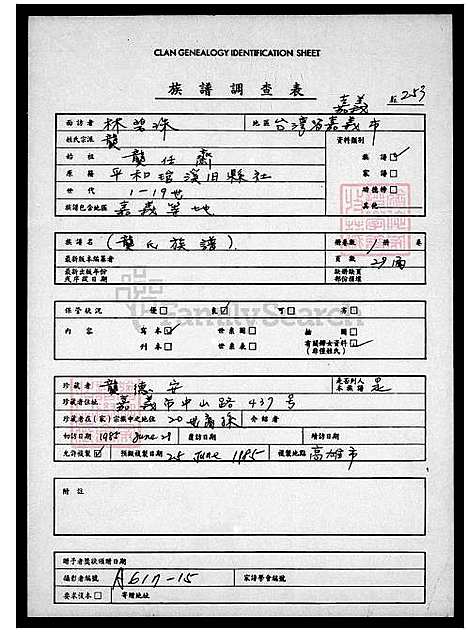 CLAN GENEALOGY IDENTIFICATION SHEET
族譜調查表
嘉義 253
面訪者 林碧珠 地區 台灣省嘉義市
姓氏宗派 龔 資料類別
始祖 龔任齋 族譜 ✓
原籍 平和琯溪旧縣社 家譜
世代 1-19世
族譜包含地區 嘉義等地 其他
族譜名 (龔氏族譜). 冊卷數 1 冊 卷
最新版本編纂者 頁數 29面
最新出版年份或序跋日期 缺冊缺頁部份損壞
保管狀況 優 良 ✓ 可 劣
內容 寫本 ✓ 世系圖 插圖
刊本 世系表 有關婦女資料(非僅姓氏) ✓
FamilySearch
珍藏者 龔德安 是否列入本族譜 是
珍藏者住址 嘉義市中山路 437 號
珍藏者在(家)宗族中之地位 20世裔孫 介紹者
初訪日期 1985 June 29 複訪日期 續訪日期
允許複製 ✓ 預擬複製日期 25 June 1985 複製地點 高雄市
附註
贈予者獎狀頒贈日期
攝影者編號 A617-15 家譜學會編號
要求複本 寄贈地址